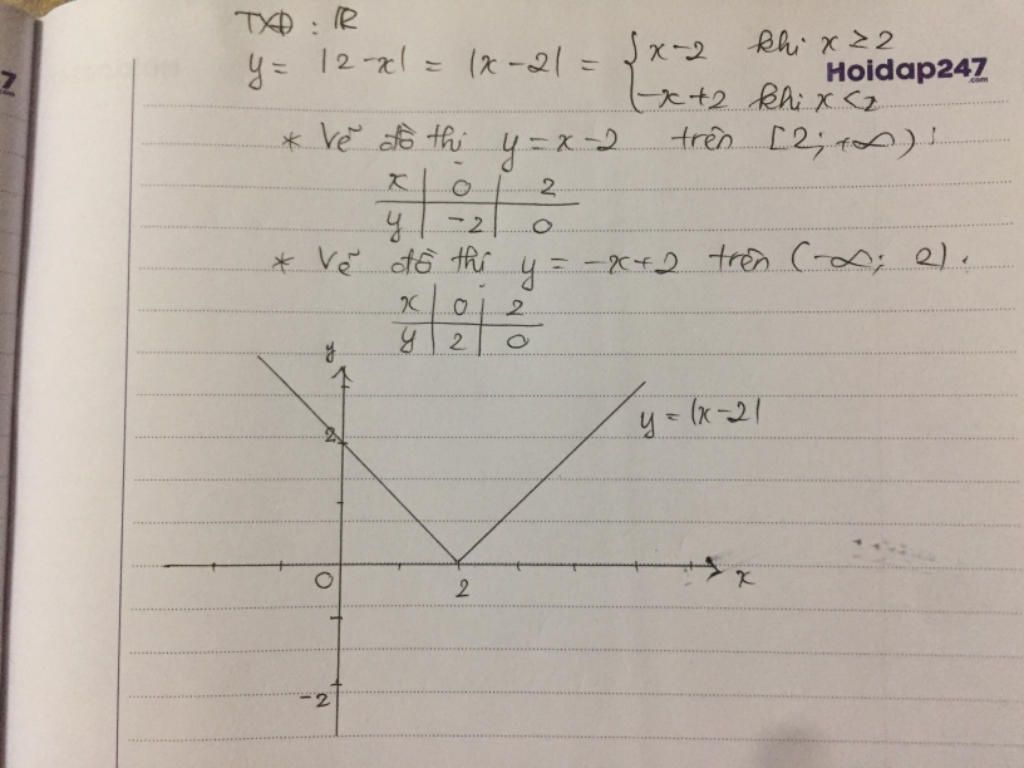 TXĐ : ℝ
y = |2-x| = |x-2| = { x-2 khi x ≥ 2
-x+2 khi x < 2
Hoidap247
.com
* Vẽ đồ thị y = x-2 trên [2; +∞) :
x | 0 | 2
y | -2 | 0
* Vẽ đồ thị y = -x+2 trên (-∞; 2).
x | 0 | 2
y | 2 | 0
y
y = |x-2|
2
O
2
x
-2
7